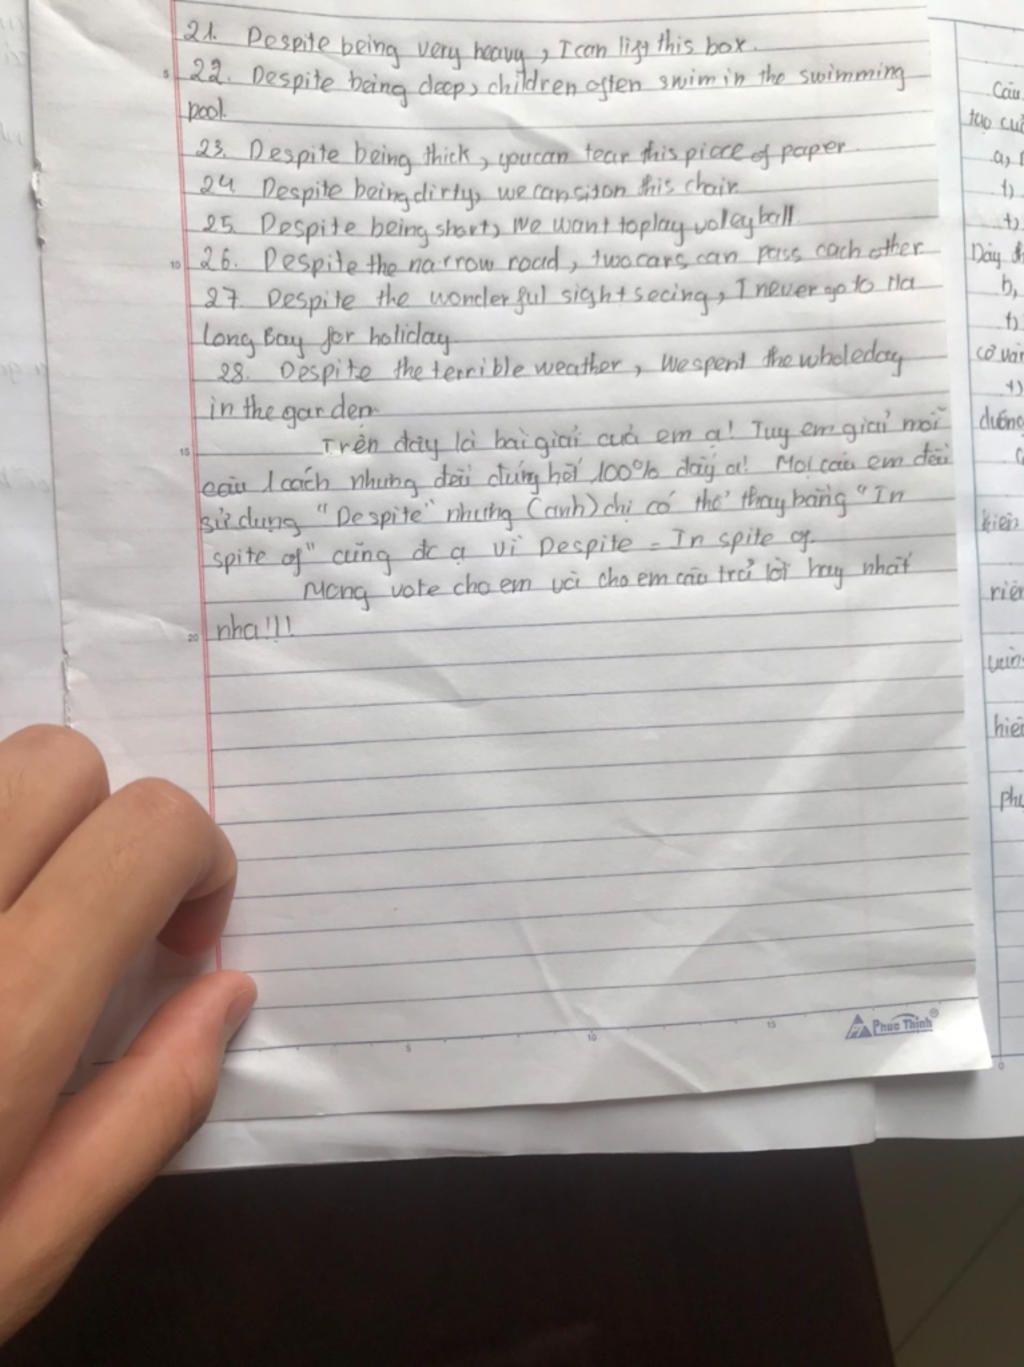 21. Despite being very heavy, I can lift this box.
22. Despite being deep, children often swim in the swimming
pool.
23. Despite being thick, you can tear this piece of paper.
24 Despite being dirty, we can sit on this chair
25. Despite being short, we want to play voleyball
26. Despite the narrow road, two cars can pass each other
27. Despite the wonderful sightseeing, I never go to Ha
Long Bay for holiday
28. Despite the terrible weather, we spent the whole day
in the garden
Trên đây là bài giải của em ạ! Tuy em giải mỗi
câu 1 cách nhưng đều đúng hết 100% đấy ạ! Mọi câu em đều
sử dụng "Despite" nhưng (anh) chị có thể thay bằng "In
spite of" cũng đc ạ vì Despite = In spite of.
Mong vote cho em và cho em câu trả lời hay nhất
nha!!!
5
10
15
20
5
10
15
Phuc Thinh
Câu
a,
t)
t)
b,
t)
t)
0